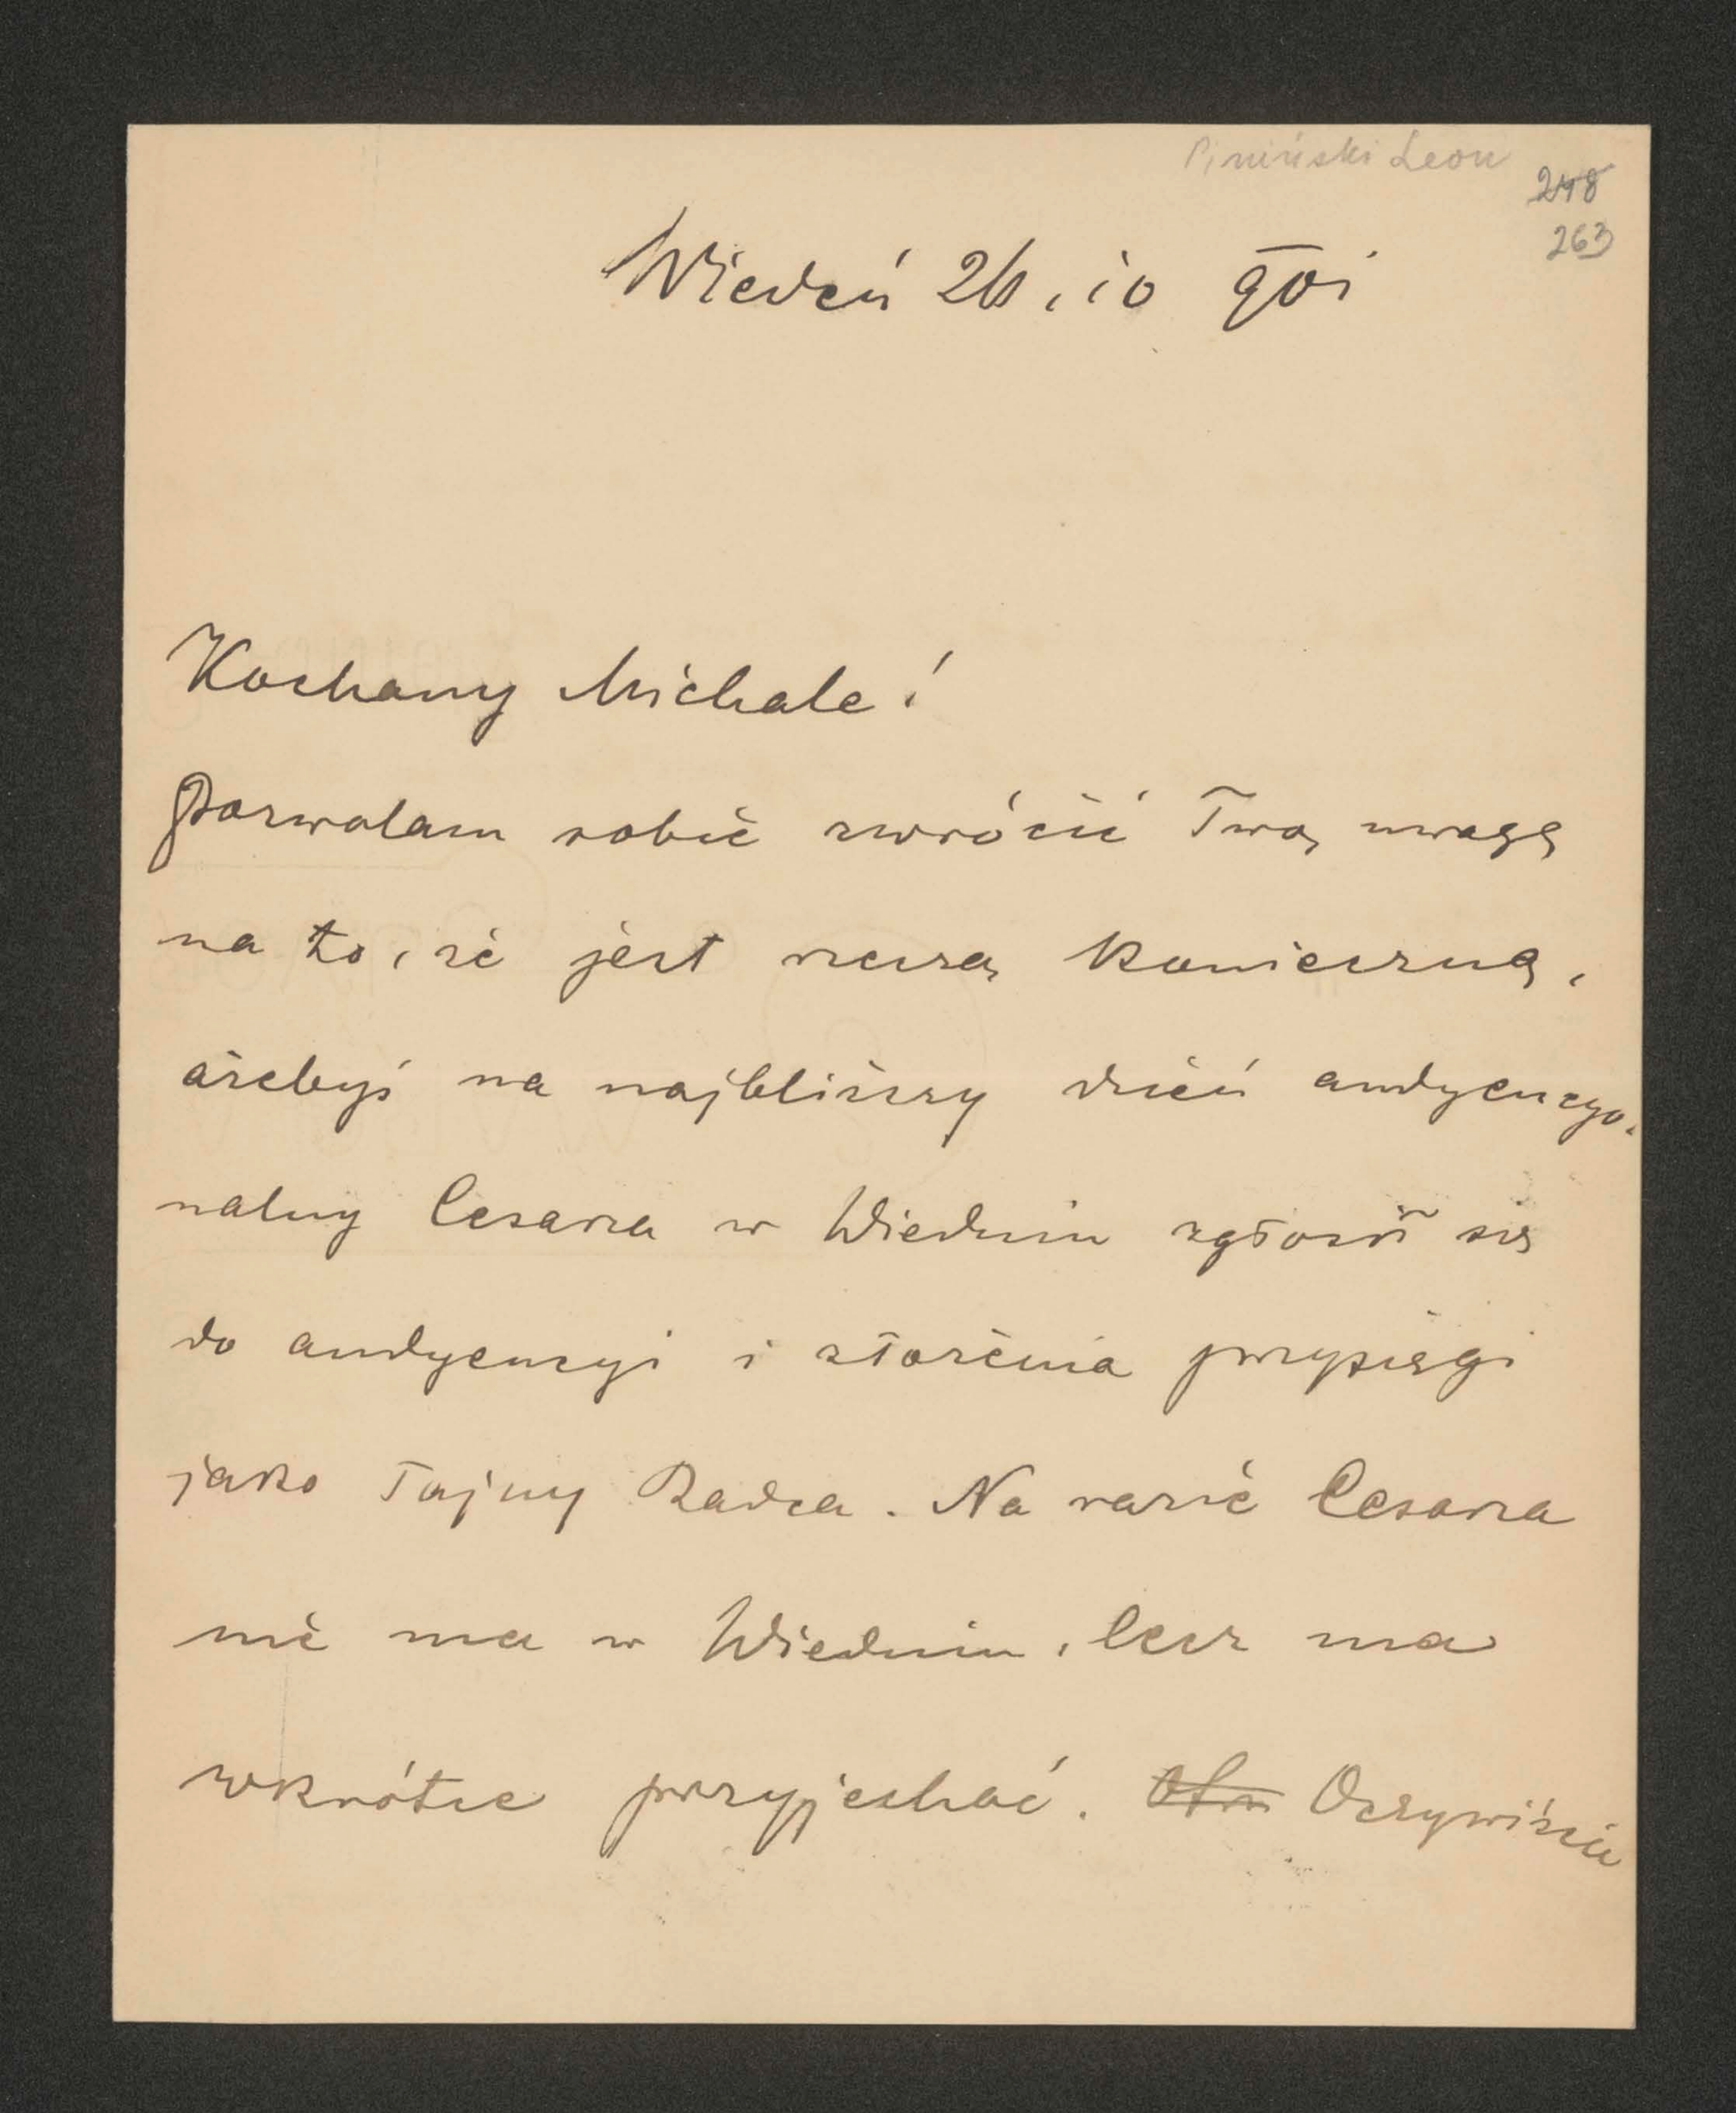 Piniński Leon
248
263
Wiedeń 26. 10 901
Kochany Michale!
Pozwalam sobie zwrócić Twą uwagę
na to, że jest rzeczą konieczną,
ażebyś na najbliższy dzień audyencyo-
nalny Cesarza w Wiedniu zgłosił się
do audyencyi i złożenia przysięgi
jako Tajny Radca. Na razie Cesarza
nie ma w Wiedniu, lecz ma
wkrótce przyjechać. Oczywiście